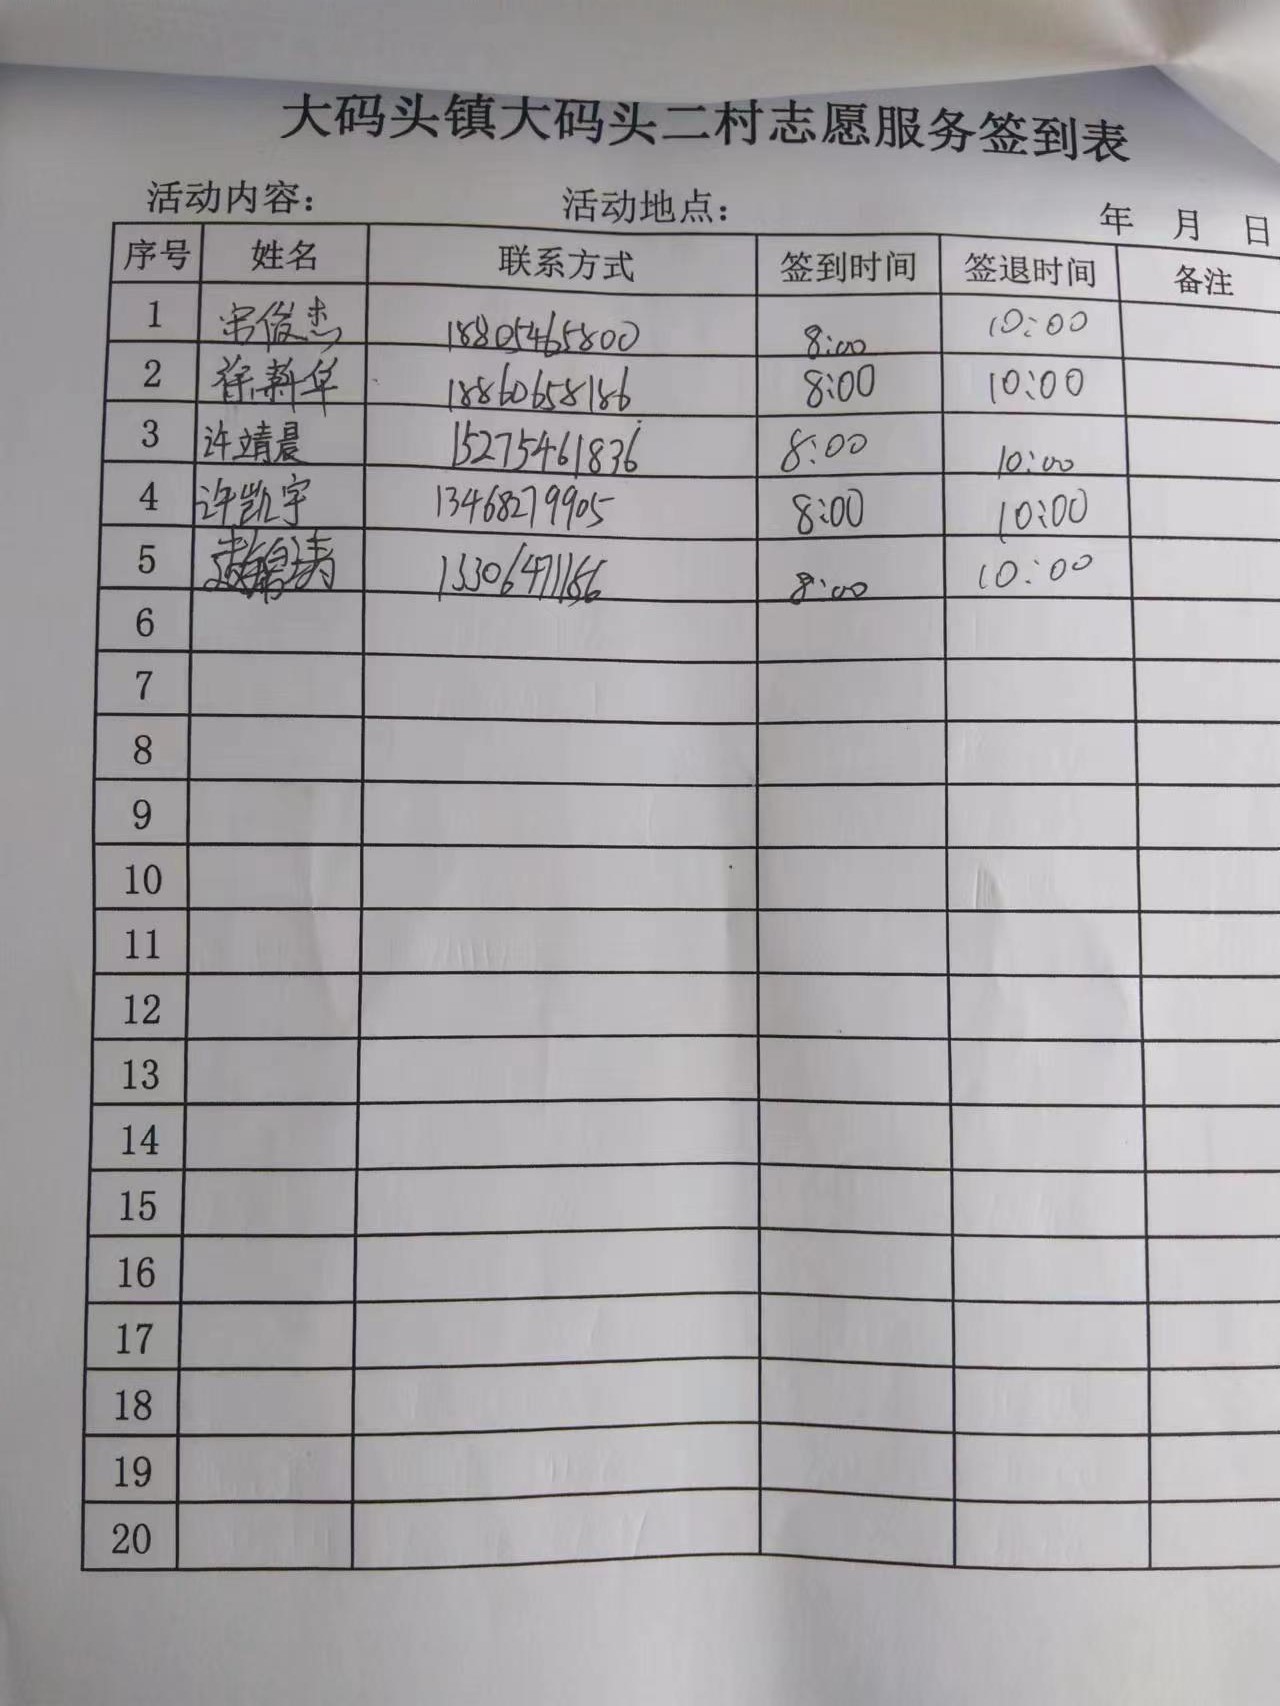 大码头镇大码头二村志愿服务签到表
活动内容： 活动地点： 年 月 日
序号 姓名 联系方式 签到时间 签退时间 备注
1 宋俊杰 18805465800 8:00 10:00
2 徐新华 18860658186 8:00 10:00
3 许靖晨 15275461836 8:00 10:00
4 许凯宇 13468279905 8:00 10:00
5 8:00 10:00
6
7
8
9
10
11
12
13
14
15
16
17
18
19
20